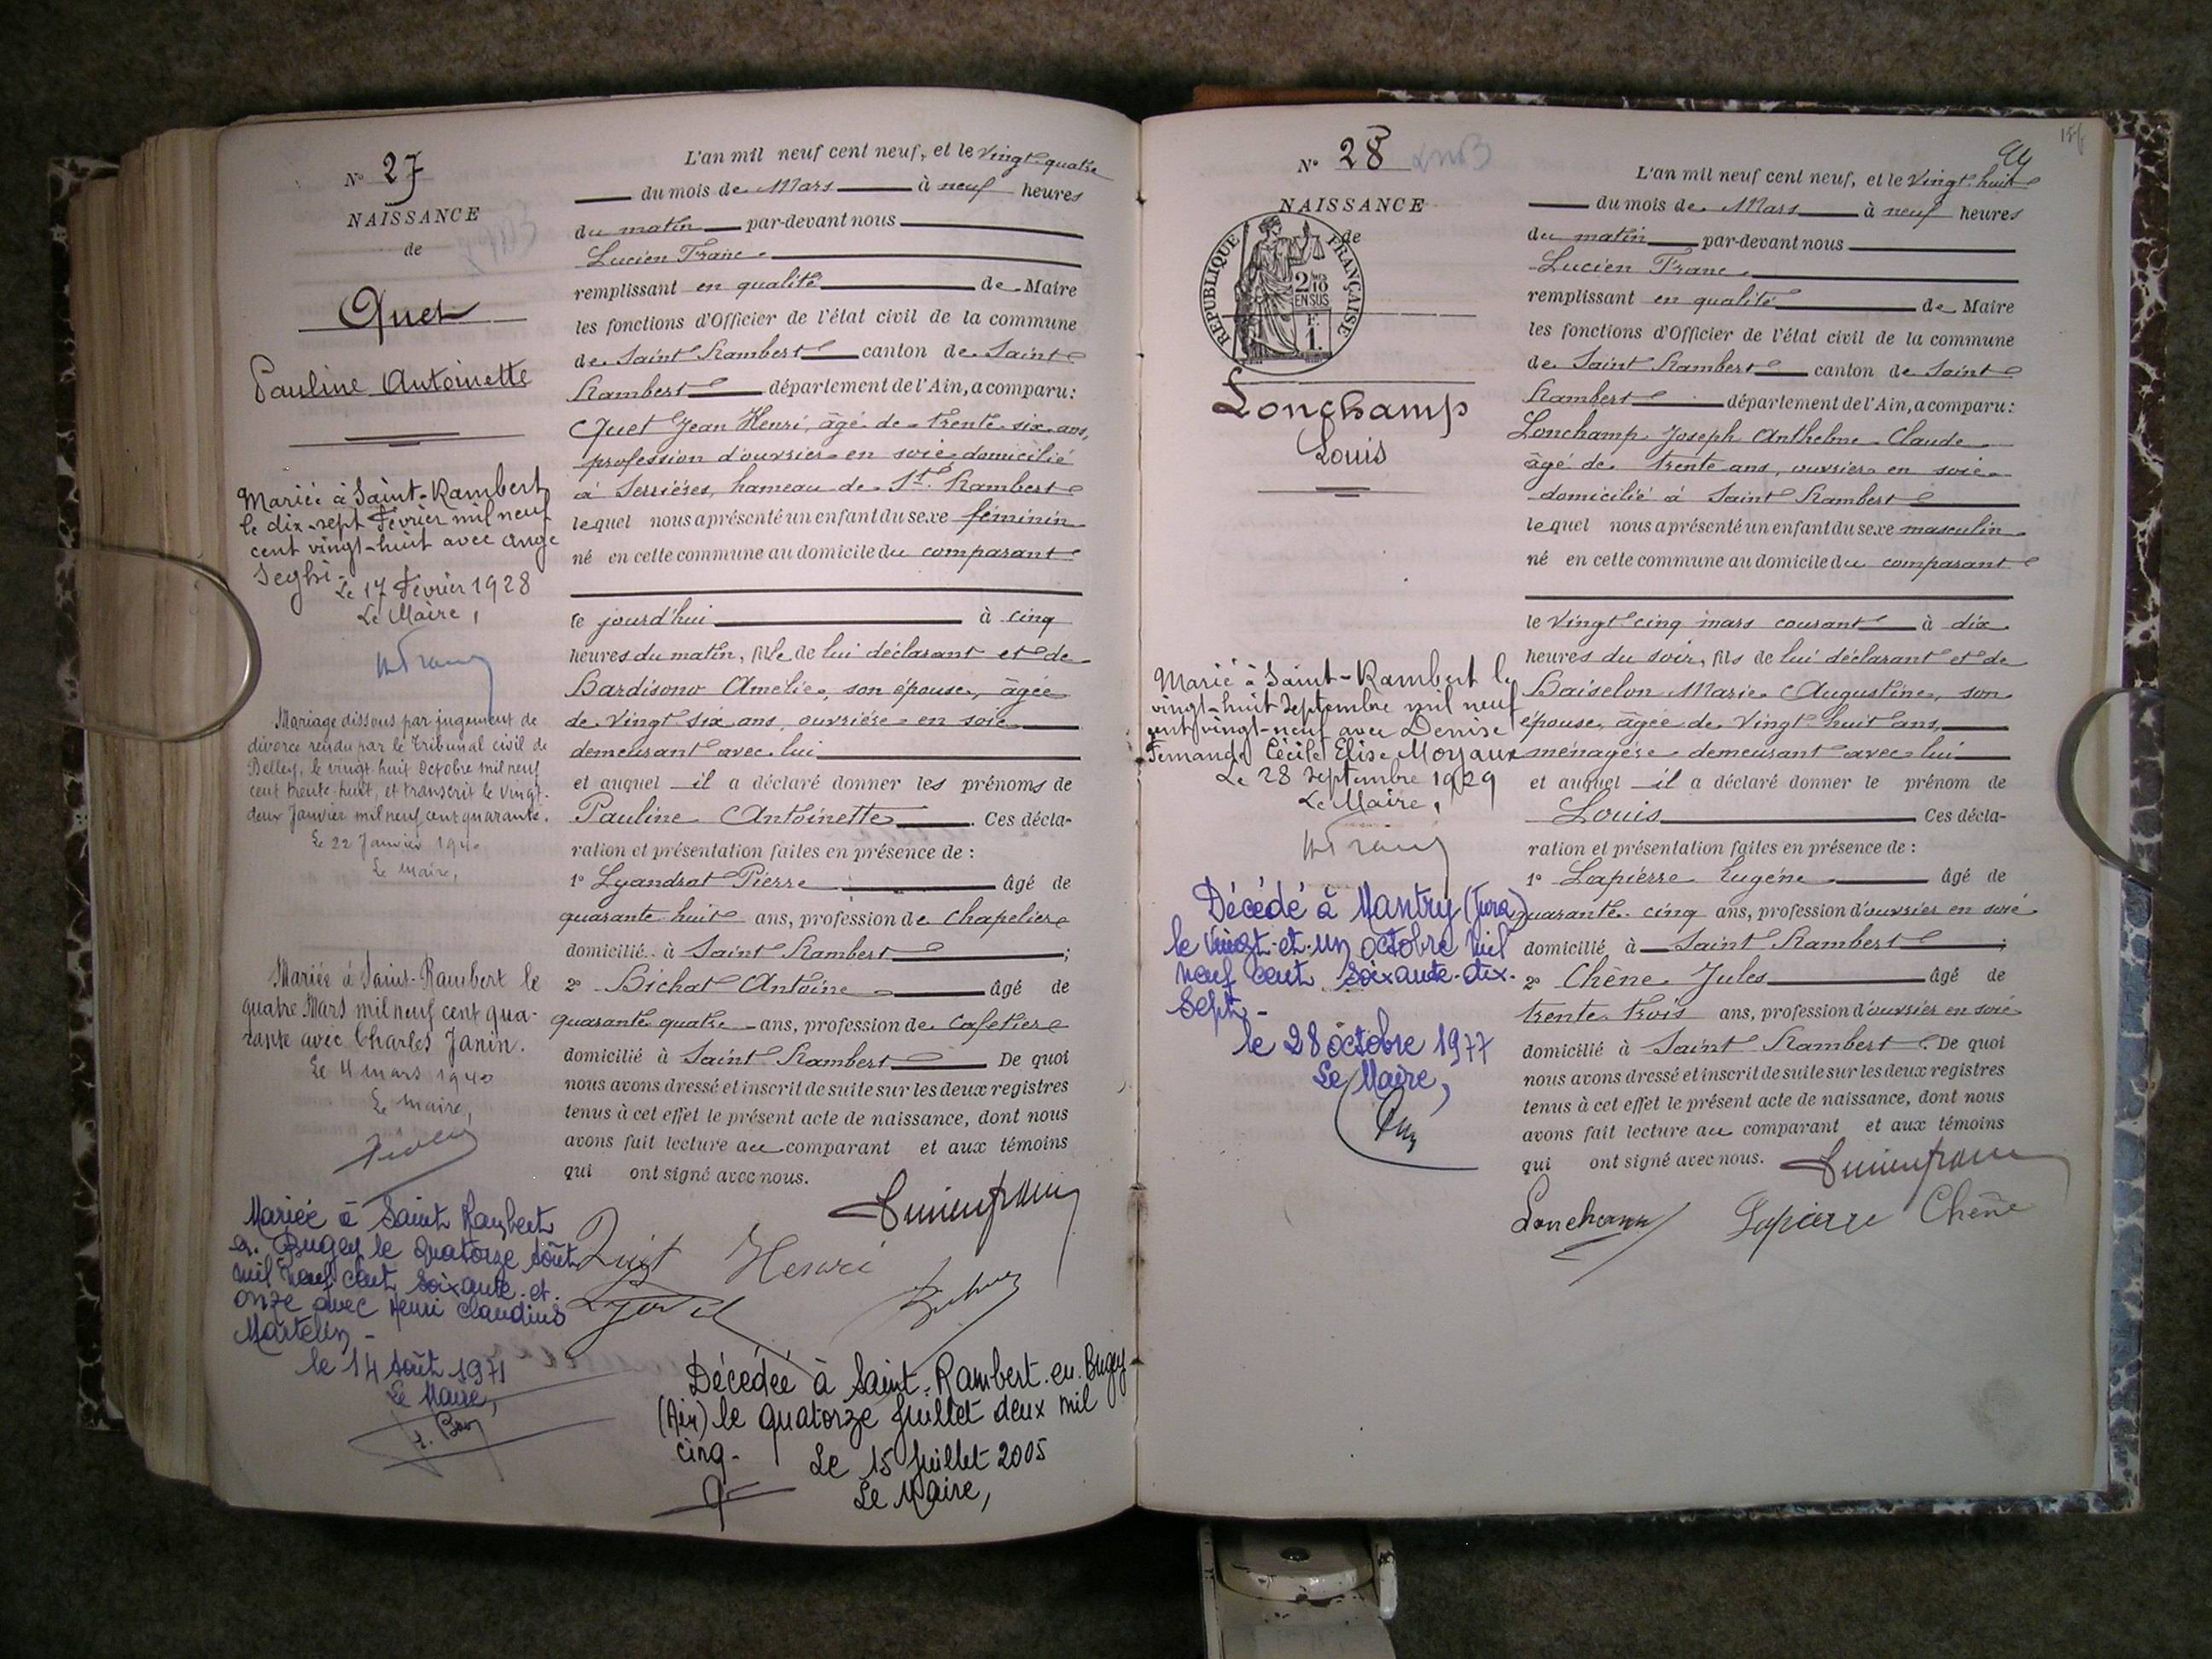 N° 27
NAISSANCE
de
Quet
Pauline Antoinette
Mariée à Saint-Rambert
le dix-sept Février mil neuf
cent vingt-huit avec Ange
Seghi.
Le 17 Février 1928
Le Maire,
Mariage dissous par jugement de
divorce rendu par le Tribunal civil de
Belley, le vingt-huit Octobre mil neuf
cent trente-huit, et transcrit le vingt-
deux Janvier mil neuf cent quarante.
Le 22 Janvier 1940
Le Maire,
Mariée à Saint-Rambert le
quatre Mars mil neuf cent qua-
rante avec Charles Janin.
Le 4 mars 1940
Le Maire,
Mariée à Saint Rambert
en Bugey le quatorze Août
mil neuf cent soixante et
onze avec Henri Claudius
Martelin -
le 14 Août 1971
Le Maire,
L'an mil neuf cent neuf, et le vingt-quatre
du mois de Mars à neuf heures
du matin par-devant nous
Lucien Franc
remplissant en qualité de Maire
les fonctions d'Officier de l'état civil de la commune
de Saint Rambert canton de Saint
Rambert département de l'Ain, a comparu:
Quet Jean Henri, âgé de trente-six ans,
profession d'ouvrier en soie domicilié
à Serrières, hameau de St. Rambert
lequel nous a présenté un enfant du sexe féminin
né en cette commune au domicile du comparant
le jourd'hui à cinq
heures du matin, fille de lui déclarant et de
Bardisono Amélie, son épouse, âgée
de vingt six ans, ouvrière en soie
demeurant avec lui
et auquel il a déclaré donner les prénoms de
Pauline Antoinette. Ces décla-
ration et présentation faites en présence de :
1° Lyandrat Pierre âgé de
quarante huit ans, profession de Chapelier
domicilié à Saint Rambert ;
2° Bichat Antoine âgé de
quarante quatre ans, profession de Cafetier
domicilié à Saint Rambert De quoi
nous avons dressé et inscrit de suite sur les deux registres
tenus à cet effet le présent acte de naissance, dont nous
avons fait lecture au comparant et aux témoins
qui ont signé avec nous.
Lucien franc
Quet Henri
Décédée à Saint-Rambert-en-Bugey
(Ain) le quatorze Juillet deux mil
cinq.
Le 15 Juillet 2005
Le Maire,
N° 28
NAISSANCE
de
REPUBLIQUE FRANÇAISE
2/10 EN SUS
F.
1.
Lonchamp
Louis
Marié à Saint-Rambert le
vingt-huit Septembre mil neuf
cent vingt-neuf avec Denise
Fernande Cécile Elise Moyaux
Le 28 Septembre 1929
Le Maire,
Décédé à Mantry (Jura)
le vingt-et-un octobre mil
neuf cent soixante-dix-
sept -
le 28 octobre 1977
Le Maire,
94
L'an mil neuf cent neuf, et le vingt-huit
du mois de Mars à neuf heures
du matin par-devant nous
Lucien Franc
remplissant en qualité de Maire
les fonctions d'Officier de l'état civil de la commune
de Saint Rambert canton de Saint
Rambert département de l'Ain, a comparu:
Lonchamp Joseph Anthelme Claude
âgé de trente ans, ouvrier en soie
domicilié à Saint Rambert
lequel nous a présenté un enfant du sexe masculin
né en cette commune au domicile du comparant
le vingt cinq mars courant à dix
heures du soir, fils de lui déclarant et de
Baiselon Marie Augustine, son
épouse, âgée de vingt huit ans,
ménagère demeurant avec lui
et auquel il a déclaré donner le prénom de
Louis Ces décla-
ration et présentation faites en présence de :
1° Lapierre Eugène âgé de
quarante cinq ans, profession d'ouvrier en soie
domicilié à Saint Rambert ;
2° Chêne Jules âgé de
trente trois ans, profession d'ouvrier en soie
domicilié à Saint Rambert. De quoi
nous avons dressé et inscrit de suite sur les deux registres
tenus à cet effet le présent acte de naissance, dont nous
avons fait lecture au comparant et aux témoins
qui ont signé avec nous.
Lucien franc
Lonchamp Lapierre Chêne